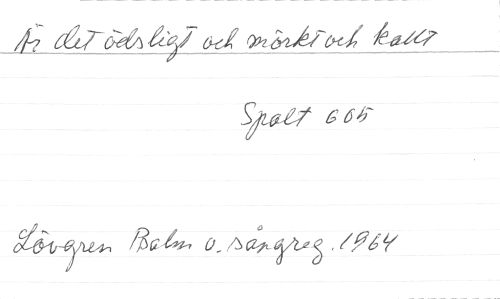 Är det ödsligt och mörkt och kallt
Spalt 665
Lövgren Psalm o. sångreg. 1964